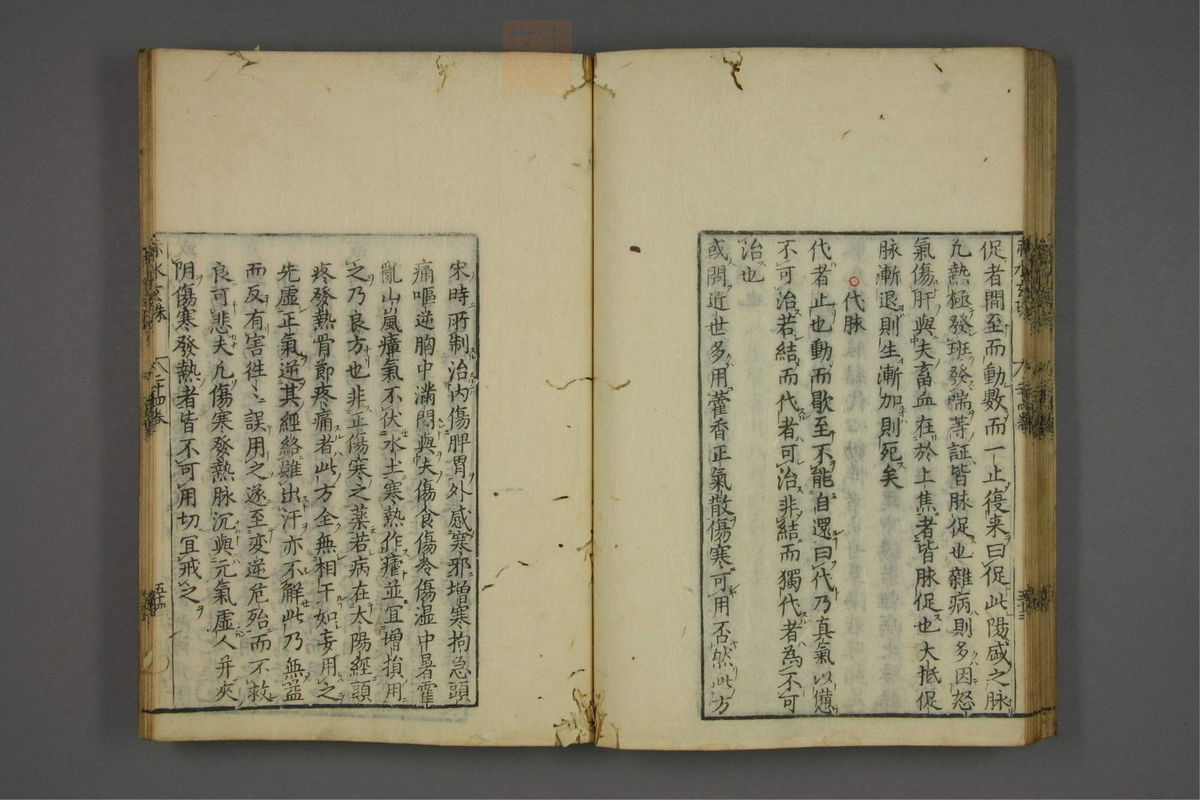 促者閒至而動数而一止復来曰促此陽盛之脉
凢熱極發班發喘荨証皆脉促也雜病則多因怒
氣傷肝與夫畜血在於上焦者皆脉促也大抵促
脉漸退則生漸加則死矣
○代脉
代者止也動而歇至不能自還曰代乃真氣以憊
不可治若結而代者可治非結而獨代者為不可
治也
或問近世多用藿香正氣散傷寒可用否然此方
宋時所制治内傷脾胃外感寒邪增寒拘急頭
痛嘔逆胸中滿悶與夫傷食傷冷傷湿中暑霍
亂山嵐瘴氣不伏水土寒熱作瘧並宜增損用
之乃良方也非正傷寒之薬若病在太陽經頭
疼發熱骨節疼痛者此方全無相干如妄用之
先虚正氣逆其經絡雖出汗亦不解此乃無益
而反有害徃〻誤用之遂至変逆危殆而不救
良可悲夫凢傷寒發熱脉沉與元氣虚人并夾
阴傷寒發熱者皆不可用切冝戒之
赤水玄珠
二十四卷
五十四